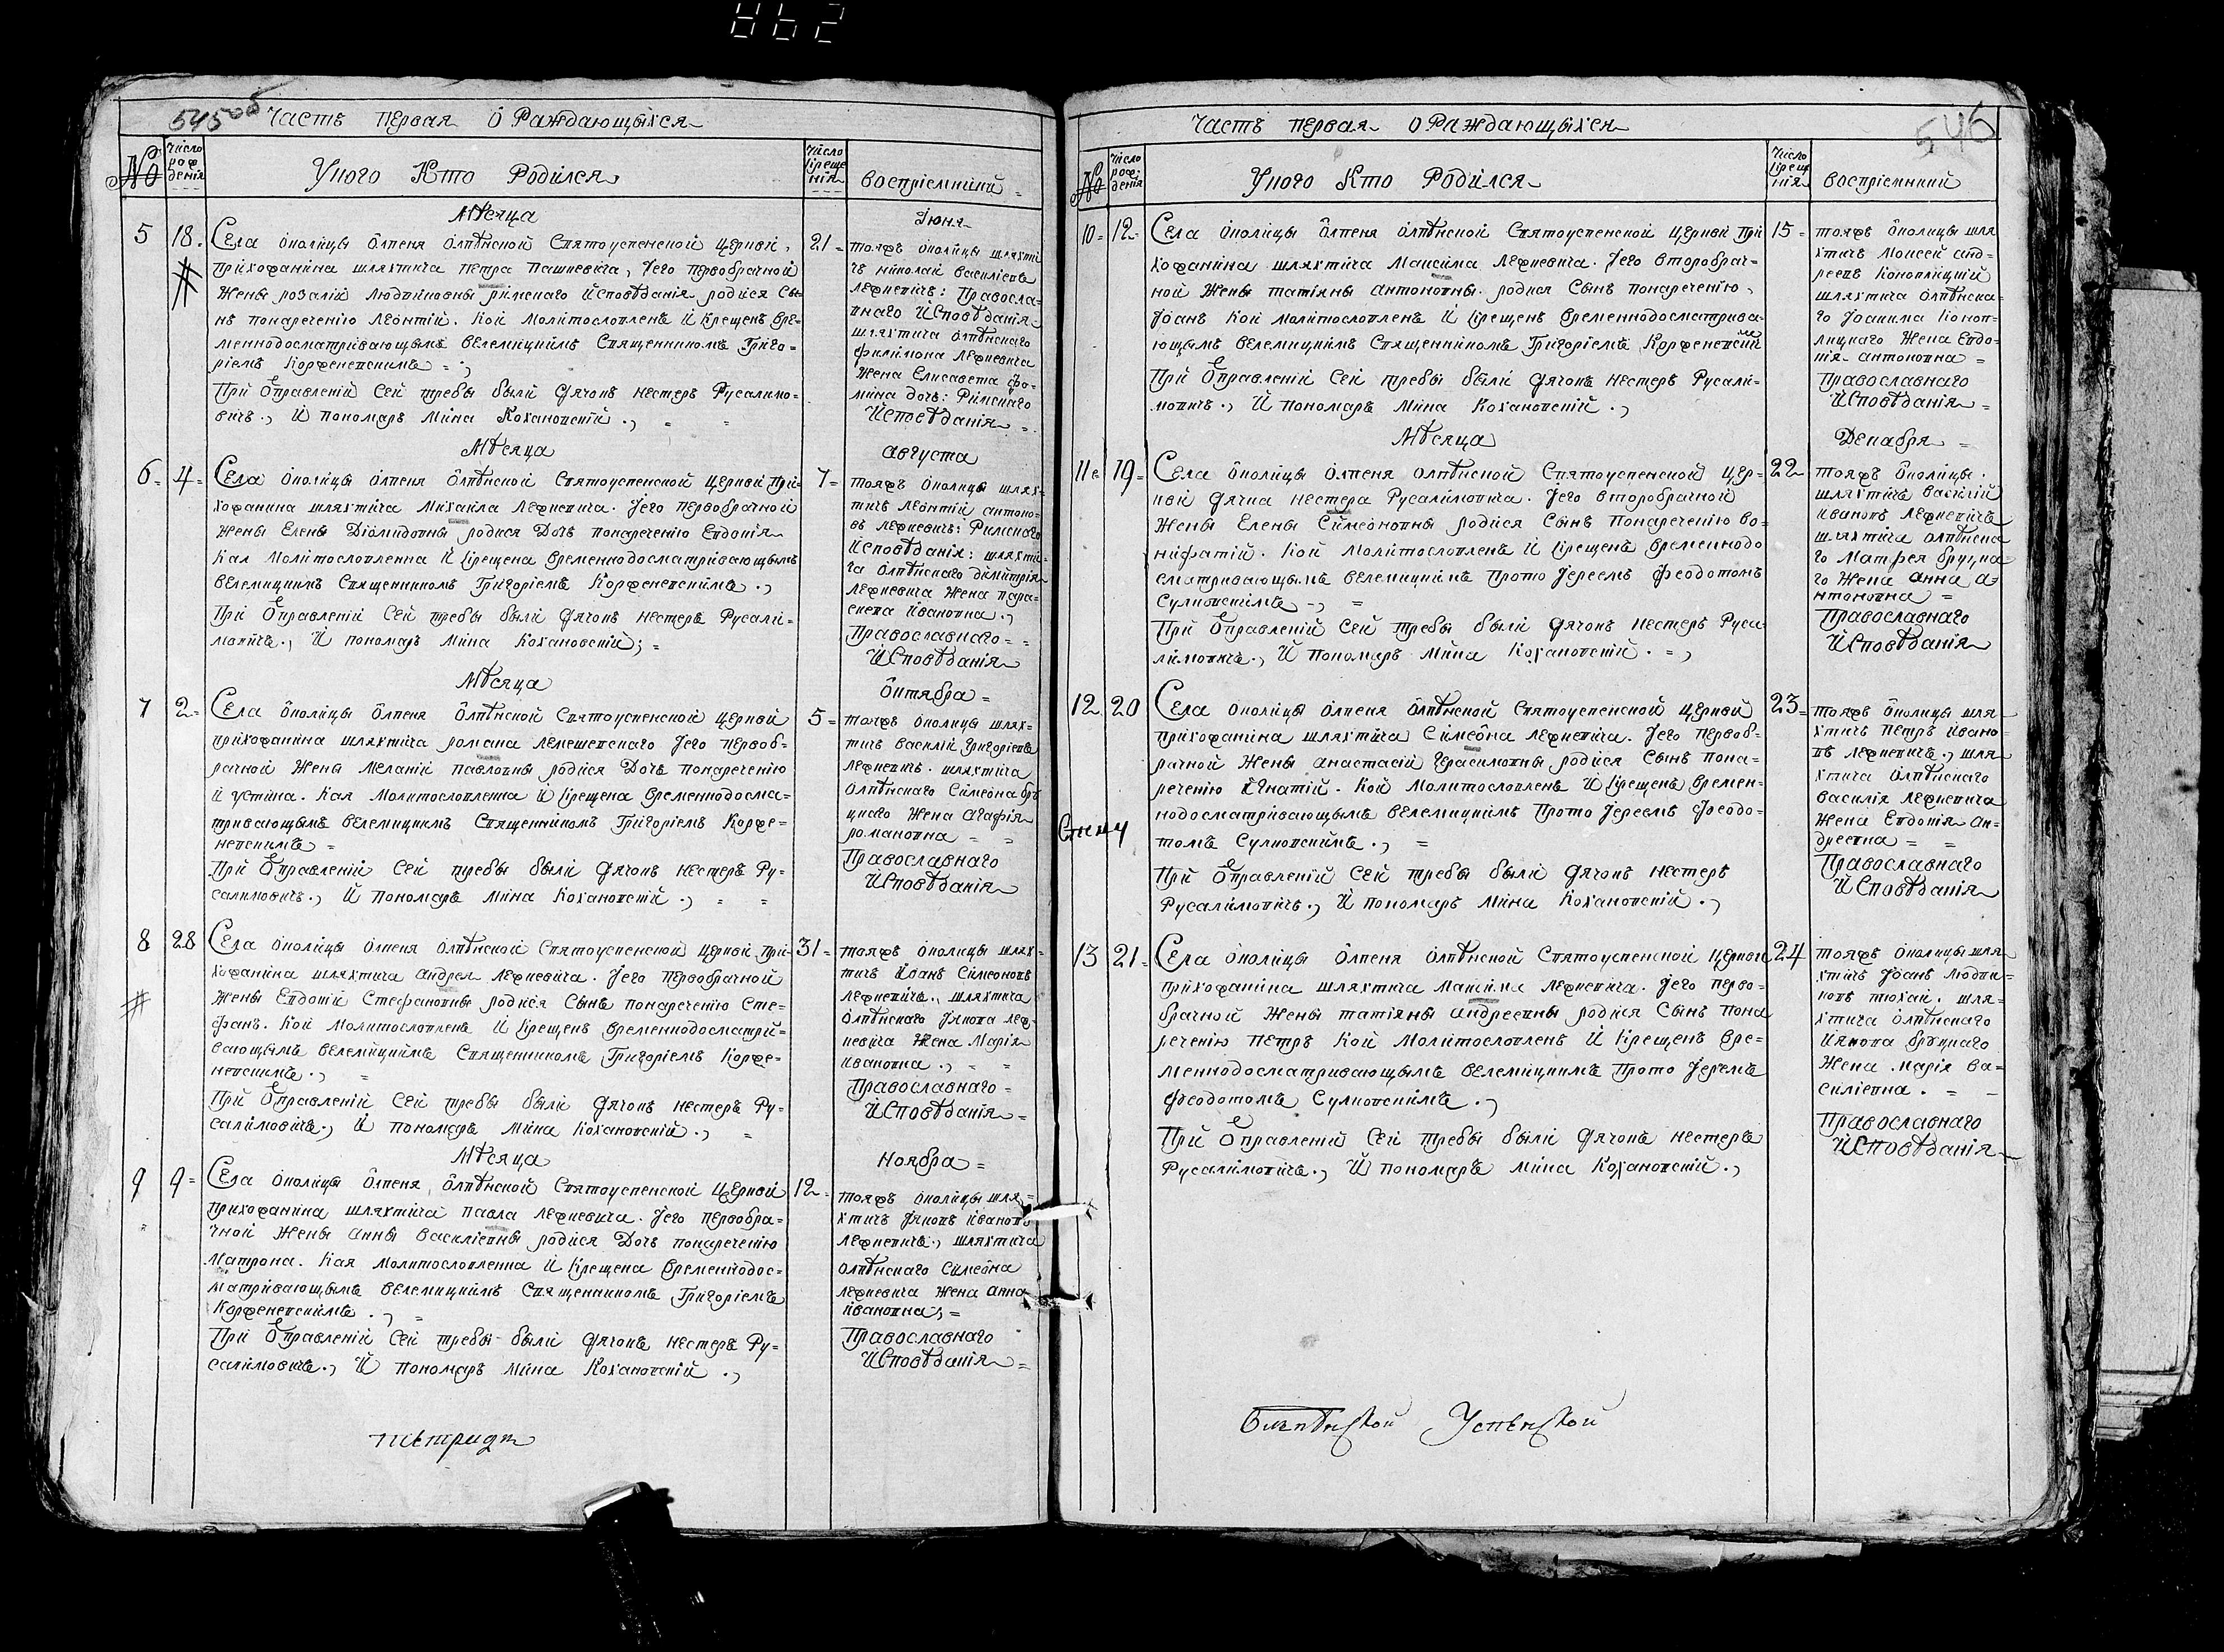 862
545об
Часть первая О Раждающыхся
№
Число рождения
Укого Кто Родился
Число крещения
Воспріемники
Мѣсяца
Іюня
5 18. Села околицы Олпеня Олпѣнской Святоуспенской Церкви,
прихожанина шляхтича Петра Пашкевича, Его первобрачной
Жены розаліи Людвиковны римскаго Исповѣданія родися Сы=
нъ понареченію Леонтій. Кой Молитвословленъ И Крещенъ вре=
меннодосматривающымъ велемицкимъ Священникомъ Григо=
ріемъ Корженевскимъ =,
При Отправленій Сей требы были дячокъ Нестеръ Русалимо=
вичъ., И пономаръ Мина Кохановскій .,
21= тояжъ околицы шляхти
чъ николай василіевъ
лежневичъ: Правосла=
внаго Исповѣданія
шляхтича олпѣнскаго
филимона Лежневича
Жена Елисавета фо=
мина дочь: Римскаго
Исповѣданія =
Мѣсяца
Августа
6= 4= Села околицы олпеня Олпѣнской Святоуспенской Церкви При=
хожанина шляхтича Михаила Лежневича. Его первобрачной
Жены Елены Діомидовны родися Дочь понареченію Евдокія
Кая Молитвословленна И Крещена временнодосматривающымъ
велемицкимъ Священникомъ Григоріемъ Корженевскимъ .,
При Отправленій Сей требы были дячокъ Нестеръ Русали=
мовичъ., И пономаръ Мина Кохановскій; =
7= тояжъ околицы шлях=
тичъ леонтій антоно=
въ лежневичъ: Римскаго
Исповѣданія: шляхти=
ча олпѣнскаго димитрія
лежневича жена пара=
скева ивановна .,
Православнаго =
Исповѣданія
Мѣсяца
Октября =
7 2= Села околицы Олпеня Олпѣнской Святоуспенской Церкви
прихожанина шляхтича романа лемешевскаго Его первоб=
рачной Жены Меланіи павловны родися Дочь понареченію
И устина. Кая Молитвословленна И Крещена временнодосма=
тривающымъ велемицкимъ Священникомъ Григоріемъ Корже=
невскимъ =
При Отправленій Сей требы были дячокъ Нестеръ Ру=
салимовичъ., И пономаръ Мина Кохановскій .,
5= тояжъ околицы шлях=
тичъ василій григоріевъ
лежневичъ. шляхтича
олпѣнскаго Симеона бру
цкаго Жена Агафія
романовна =
Православнаго
Исповѣданія
8 28 Села околицы олпеня Олпѣнской Святоуспенской Церкви При=
хожанина шляхтича андрея лежневича. Его первобрачной
Жены Евдокіи Стефановны родися Сынъ понареченію Сте=
фанъ. Кой Молитвословленъ И Крещенъ временнодосматри=
вающымъ велемицкимъ Священникомъ Григоріемъ Корже=
невскимъ ., =
При Отправленій Сей требы были дячокъ нестеръ Ру=
салимовичъ., И пономаръ Мина Кохановскій .,
31= тояжъ околицы шлях=
тичъ Иванъ Симеоновъ
лежневичъ., шляхтича
олпѣнскаго Якова леж=
невича Жена Марія
ивановна .,
Православнаго =
Исповѣданія =
Мѣсяца
Ноября =
9 9= Села околицы Олпеня, Олпѣнской Святоуспенской Церкви
прихожанина шляхтича павла лежневича. Его первобра=
чной Жены анны василіевны родися Дочь понареченію
Матрона. Кая Молитвословленна И Крещена временнодос=
матривающымъ велемицкимъ Священникомъ Григоріемъ
Корженевскимъ ., =
При Отправленій Сей требы были дячокъ нестеръ Ру=
салимовичъ., И пономаръ Мина Кохановскій .,
12= тояжъ околицы шля=
хтичъ Яковъ ивановъ
лежневичъ., шляхтича
олпѣнскаго Симеона
лежневича Жена анна
ивановна; =
Православнаго
Исповѣданія =
546
Часть первая О Раждающыхся
№
Число рожденія
Укого Кто Родился
Число крещенія
Воспріемники
10= 12= Села околицы Олпеня Олпѣнской Святоуспенской Церкви При
хожанина шляхтича Максима Лежневича. Его второбрач=
ной Жены татіяны антоновны родися Сынъ понареченію,
Іоанъ Кой Молитвословленъ И Крещенъ временнодосматрива=
ющымъ велемицкимъ Священникомъ Григоріемъ Корженевскимъ
При Отправленій Сей требы были дячокъ нестеръ Русали=
мовичъ., И пономаръ Мина Кохановскій .,
15= тояжъ околицы шля
хтичъ Моисей анд=
реевъ коноплицкій
шляхтича олпѣнска=
го Іоакима коноп=
лицкаго Жена Евдо=
кія антоновна =
Православнаго
Исповѣданія =
Мѣсяца
Декабря =
11= 19= Села околицы Олпеня Олпѣнской Святоуспенской Цер=
кви дячка нестера Русалимовича. Его второбрачной
Жены Елены Симеоновны родися Сынъ понареченію во=
нифатій. Кой Молитвословленъ И Крещенъ временнодо
сматривающымъ велемицкимъ Прото Іереемъ Феодотомъ
Сулковскимъ =, =
При Отправленій Сей требы были дячокъ нестеръ Руса
лимовичъ., И пономаръ Мина Кохановскій. =,
22= тояжъ околицы.
шляхтичъ василій
ивановъ лежневичъ
шляхтича олпѣнска
го Матфея бруцка
го Жена анна а=
нтоновна =
Православнаго
Исповѣданія
12 20 Села околицы олпеня Олпѣнской Святоуспенской Церкви
прихожанина шляхтича Симеона лежневича. Его первоб=
рачной Жены анастасіи Герасимовны родися Сынъ пона=
реченію Игнатій. Кой Молитвословленъ И Крещенъ времен=
нодосматривающымъ велемицкимъ Прото Іереемъ Феодо=
томъ Сулковскимъ ., =
При Отправленій Сей требы были дячокъ нестеръ
Русалимовичъ., И пономаръ Мина Кохановскій .,
23= тояжъ околицы шля
хтичъ Петръ ивано=
въ лежневичъ., шля
хтича олпѣнскаго
василія лежневича
Жена Евдокія ан=
дреевна = =
Православнаго
Исповѣданія
13 21= Села околицы Олпеня Олпѣнской Святоуспенской Церкви
прихожанина шляхтича Максима лежневича. Его перво=
брачной Жены татіяны андреевны родися Сынъ пона
реченію Петръ Кой Молитвословленъ И Крещенъ вре=
меннодосматривающымъ велемицкимъ Прото Іереемъ
Феодотомъ Сулковскимъ .,
При Отправленій Сей требы были дячокъ нестеръ
Русалимовичъ., И пономаръ Мина Кохановскій .,
24 тояжъ околицы шля
хтичъ Іоанъ людви=
ковъ тюхай. шля=
хтича олпѣнскаго
Иякова бруцкаго
Жена марія ва=
силіевна. =
Православнаго
Исповѣданія
Успенской